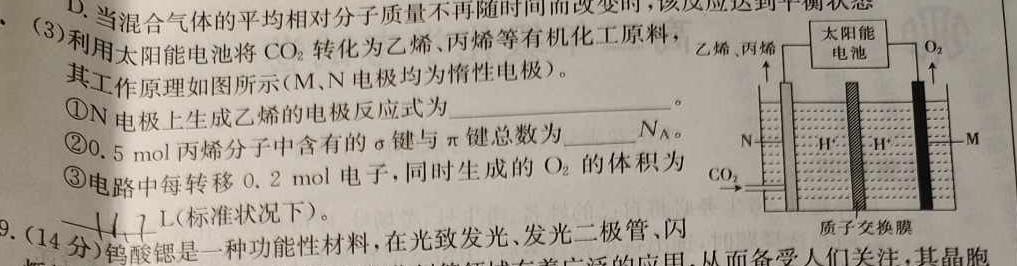 D. 当混合气体的平均相对分子质量不再随时间而改变时,该反应达到平衡状态
(3)利用太阳能电池将 CO₂ 转化为乙烯、丙烯等有机化工原料,
其工作原理如图所示(M、N 电极均为惰性电极)。
①N 电极上生成乙烯的电极反应式为________。
②0.5 mol 丙烯分子中含有的 σ 键与 π 键总数为____N_A。
③电路中每转移 0.2 mol 电子,同时生成的 O₂ 的体积为
____L(标准状况下)。
乙烯、丙烯
太阳能
电池
O₂
N
H⁺
H⁺
M
CO₂
质子交换膜
9. (14 分)钨酸锶是一种功能性材料,在光致发光、发光二极管、闪
应用,从而备受人们关注,其晶胞